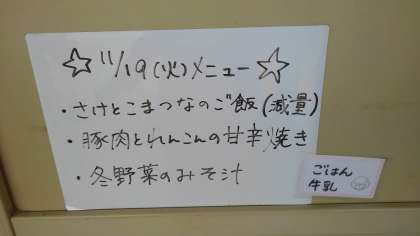 ☆ 11/19(火)メニュー☆
・さけとこまつなのご飯(減量)
・豚肉とれんこんの甘辛焼き
・冬野菜のみそ汁
ごはん
牛乳